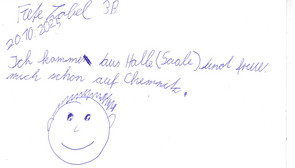 Zabel 3B
20.10.2025
Ich komme aus Halle (Saale) und freue
mich schon auf Chemnitz.